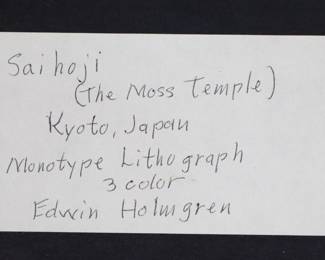 Saihoji
(The Moss Temple)
Kyoto, Japan
Monotype Lithograph
3 color
Edwin Holmgren